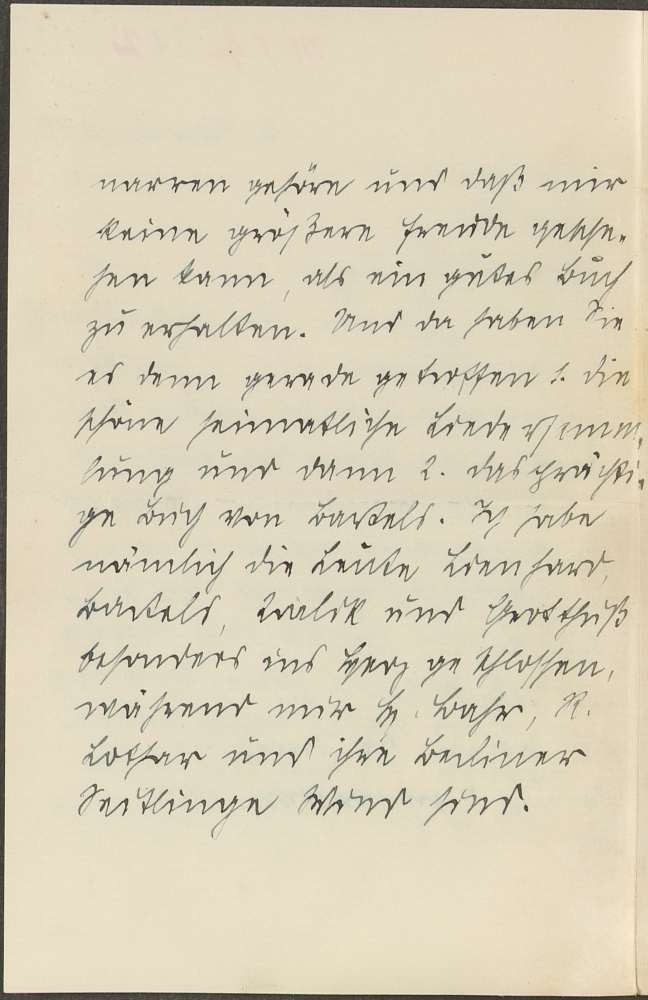 narren gehöre und daß mir
keine größere Freude gesche-
hen kann, als ein gutes Buch
zu erhalten. Und da haben Sie
es denn gerade getroffen 1. die
schöne heimatliche Liedersamm-
lung und dann 2. das prächti-
ge Buch von Bartels. Ich habe
nämlich die Leute Lienhard,
Bartels, und Grotthuß
besonders ins Herz geschlossen,
während mir H. Bahr, R.
Lothar und ihre Berliner
Wind sind.